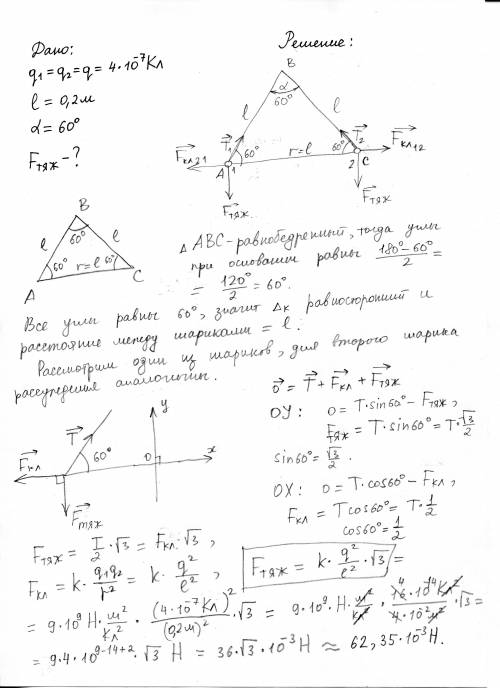 Дано:
q₁=q₂=q=4·10⁻⁷Кл
l=0,2м
α=60°
Fтяж-?
Решение:
B
α
60°
l
l
T₁
T₂
Fкл21
60°
r=l
60°
Fкл12
A
1
2
C
Fтяж
Fтяж
B
60°
l
l
60°
r=l
60°
A
C
△ABC-равнобедренный, тогда углы
при основании равны (180°-60°)/2=
= 120°/2 = 60°.
Все углы равны 60°, значит △к равносторонний и
расстояние между шариками = l.
Рассмотрим один из шариков, для второго шарика
рассуждения аналогичны.
0 = T + Fкл + Fтяж
OY: 0=T·sin60°-Fтяж,
Fтяж=T·sin60°=T·√3/2
sin60°=√3/2.
OX: 0=T·cos60°-Fкл,
Fкл=Tcos60°=T·1/2
cos60°=1/2
y
T
60°
0
x
Fкл
Fтяж
Fтяж = T/2·√3 = Fкл·√3,
Fкл = k·q₁q₂/r² = k·q²/l²,
Fтяж = k·q²/l²·√3 =
= 9·10⁹ Н·м²/Кл² · (4·10⁻⁷Кл)²/(0,2м)² ·√3 = 9·10⁹·Н·м²/Кл² · 16·10⁻¹⁴Кл²/4·10⁻²м² ·√3 =
4
= 9·4·10⁹⁻¹⁴⁺²·√3 Н = 36·√3·10⁻³Н ≈ 62,35·10⁻³Н.